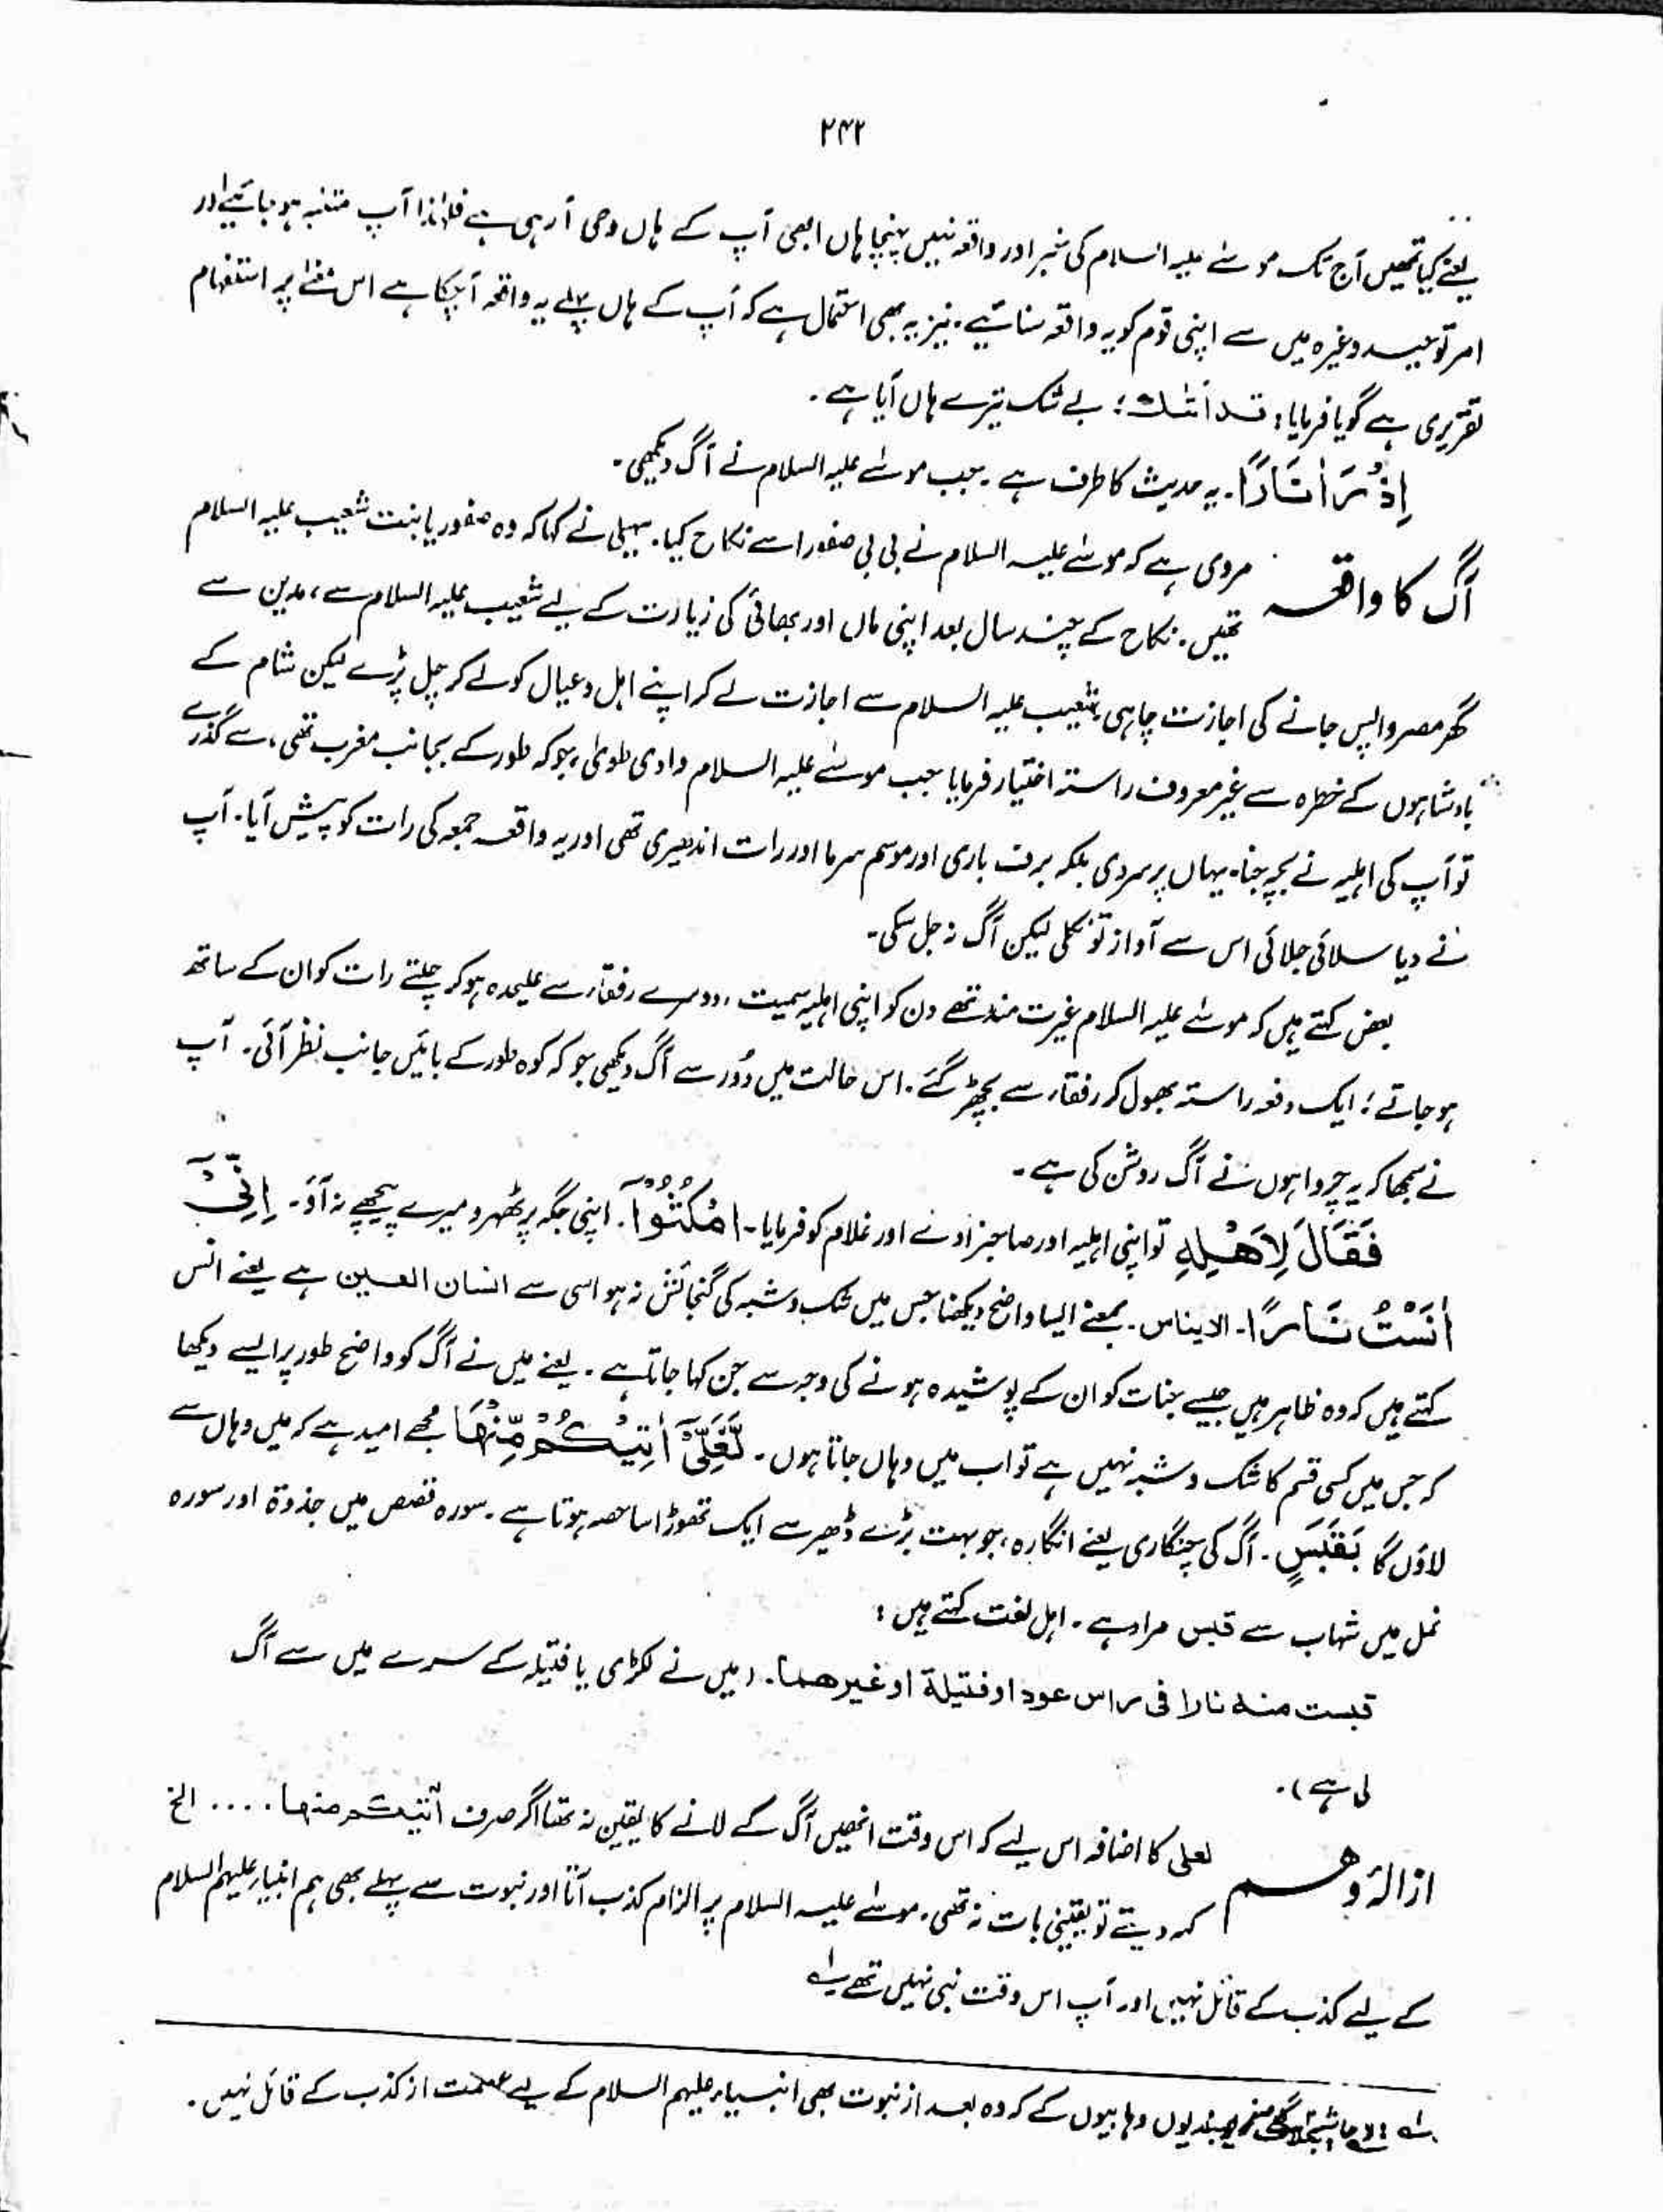 ۲۴۲
یعنے کیا تمھیں آج تک موسٰے علیہ السلام کی خبر اور واقعہ نہیں پہنچا ہاں ابھی آپ کے ہاں وحی آ رہی ہے فلہٰذا آپ متنبہ ہو جائیے اور
امر توحید وغیرہ میں سے اپنی قوم کو یہ واقعہ سنائیے ۔ نیز یہ بھی احتمال ہے کہ آپ کے ہاں پہلے یہ واقعہ آچکا ہے اس معنٰے پر استفہام
تقریری ہے گویا فرمایا : قد أتٰك : بے شک تیرے ہاں آیا ہے ۔
اِذْ رَاٰ نَارًا ۔ یہ حدیث کا ظرف ہے ۔ جب موسٰے علیہ السلام نے آگ دیکھی ۔
آگ کا واقعہ مروی ہے کہ موسٰے علیہ السلام نے بی بی صفورا سے نکاح کیا ۔ سہیلی نے کہا کہ وہ صفوریا بنت شعیب علیہ السلام
تھیں ۔ نکاح کے چند سال بعد اپنی ماں اور بھائی کی زیارت کے لیے شعیب علیہ السلام سے ، مدین سے
گھر مصر واپس جانے کی اجازت چاہی ۔ شعیب علیہ السلام سے اجازت لے کر اپنے اہل و عیال کو لے کر چل پڑے لیکن شام کے
بادشاہوں کے خطرہ سے غیر معروف راستہ اختیار فرمایا جب موسٰے علیہ السلام وادی طویٰ ، جو کہ طور کے بجانب مغرب تھی ، سے گذرے
تو آپ کی اہلیہ نے بچہ جنا ۔ یہاں پر سردی بلکہ برف باری اور موسم سرما اور رات اندھیری تھی اور یہ واقعہ جمعہ کی رات کو پیش آیا ۔ آپ
نے دیا سلائی جلائی اس سے آواز تو نکلی لیکن آگ نہ جل سکی ۔
بعض کہتے ہیں کہ موسٰے علیہ السلام غیرت مند تھے دن کو اپنی اہلیہ سمیت ، دوسرے رفقاء سے علیحدہ ہو کر چلتے رات کو ان کے ساتھ
ہو جاتے ؛ ایک دفعہ راستہ بھول کر رفقاء سے بچھڑ گئے ۔ اس حالت میں دُور سے آگ دیکھی جو کہ کوہ طور کے بائیں جانب نظر آئی ۔ آپ
نے سمجھا کہ یہ چرواہوں نے آگ روشن کی ہے ۔
فَقَالَ لِاَهْلِهِ تو اپنی اہلیہ اور صاحبزادے اور غلام کو فرمایا ۔ امْكُثُوْٓا ۔ اپنی جگہ پر ٹھہرو میرے پیچھے نہ آؤ ۔ اِنِّيْٓ
اٰنَسْتُ نَارًا ۔ الایناس ۔ بمعنے ایسا واضح دیکھنا جس میں شک و شبہ کی گنجائش نہ ہو اسی سے انسان العین ہے یعنے انس
کہتے ہیں کہ وہ ظاہر ہیں جیسے جنات کو ان کے پوشیدہ ہونے کی وجہ سے جن کہا جاتا ہے ۔ یعنے میں نے آگ کو واضح طور پر ایسے دیکھا
کہ جس میں کسی قسم کا شک و شبہ نہیں ہے تو اب میں وہاں جاتا ہوں ۔ لَّعَلِّيْٓ اٰتِيْكُمْ مِّنْهَا مجھے امید ہے کہ میں وہاں سے
لاؤں گا بِقَبَسٍ ۔ آگ کی چنگاری یعنے انگارہ ، جو بہت بڑے ڈھیر سے ایک تھوڑا سا حصہ ہوتا ہے ۔ سورہ قصص میں جذوة اور سورہ
نمل میں شہاب سے قبس مراد ہے ۔ اہل لغت کہتے ہیں :
قبست منه نارا فی راس عود او فتیلة او غیرهما ۔ ( میں نے لکڑی یا فتیلہ کے سرے میں سے آگ
لی ہے ) ۔
ازالۂ وہم لعلی کا اضافہ اس لیے کہ اس وقت انھیں آگ کے لانے کا یقین نہ تھا اگر صرف اٰتیکم منها .... الخ
کہہ دیتے تو یقینی بات نہ تھی ۔ موسٰے علیہ السلام پر الزام کذب آتا اور نبوت سے پہلے بھی ہم انبیاء علیہم السلام
کے لیے کذب کے قائل نہیں اور آپ اس وقت نبی نہیں تھے ۔ لہ
لہ دیوبندیوں وہابیوں کے کہ وہ بعد از نبوت بھی انبیاء علیہم السلام کے لیے عصمت از کذب کے قائل نہیں ۔